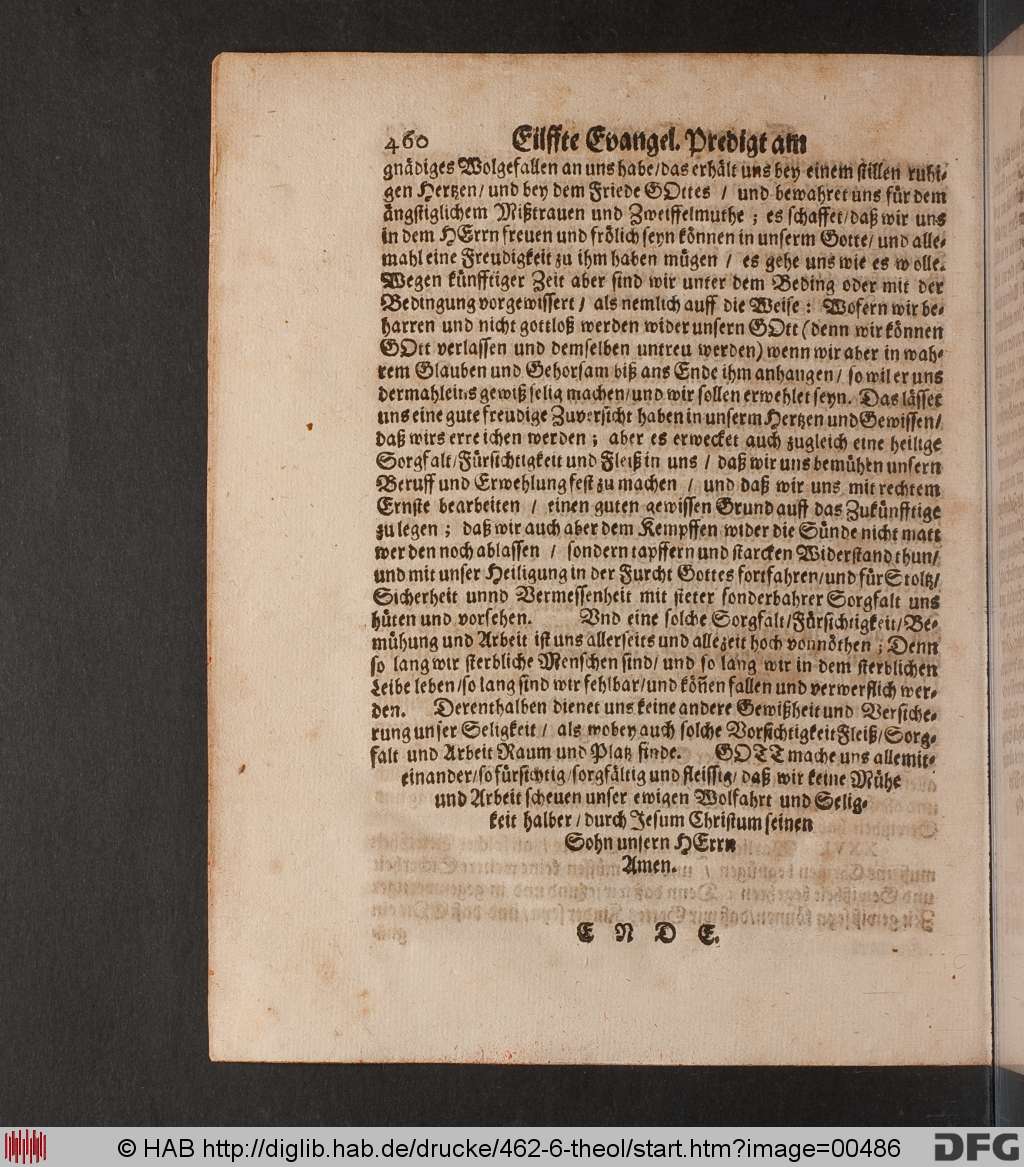 460 Eilffte Evangel. Predigt am
gnädiges Wolgefallen an uns habe/das erhält uns bey einem stillen ruhi-
gen Hertzen/ und bey dem Friede GOttes / und bewahret uns für dem
ängstiglichem Mißtrauen und Zweiffelmuthe ; es schaffet/daß wir uns
in dem HErrn freuen und frölich seyn können in unserm Gotte/ und alle-
mahl eine Freudigkeit zu ihm haben mügen / es gehe uns wie es wolle.
Wegen künfftiger Zeit aber sind wir unter dem Beding oder mit der
Bedingung vorgewissert / als nemlich auff die Weise : Wofern wir be-
harren und nicht gottloß werden wider unsern GOtt (denn wir können
GOtt verlassen und demselben untreu werden) wenn wir aber in wah-
rem Glauben und Gehorsam biß ans Ende ihm anhangen / so wil er uns
dermahleins gewiß selig machen/und wir sollen erwehlet seyn. Das lässet
uns eine gute freudige Zuversicht haben in unserm Hertzen und Gewissen/
daß wirs erreichen werden ; aber es erwecket auch zugleich eine heilige
Sorgfalt/Fürsichtigkeit und Fleiß in uns / daß wir uns bemühen unsern
Beruff und Erwehlung fest zu machen / und daß wir uns mit rechtem
Ernste bearbeiten / einen guten gewissen Grund auff das Zukünfftige
zu legen ; daß wir auch aber dem Kempffen wider die Sünde nicht matt
werden noch ablassen / sondern tapffern und starcken Widerstand thun/
und mit unser Heiligung in der Furcht Gottes fortfahren/und für Stoltz/
Sicherheit unnd Vermessenheit mit steter sonderbahrer Sorgfalt uns
hüten und vorsehen. Und eine solche Sorgfalt/Fürsichtigkeit/Be-
mühung und Arbeit ist uns allerseits und allezeit hoch vonnöthen ; Denn
so lang wir sterbliche Menschen sind/ und so lang wir in dem sterblichen
Leibe leben/so lang sind wir fehlbar/und köñen fallen und verwerflich wer-
den. Derenthalben dienet uns keine andere Gewißheit und Versiche-
rung unser Seligkeit / als wobey auch solche Vorsichtigkeit Fleiß/Sorg-
falt und Arbeit Raum und Platz finde. GOTT mache uns allemit-
einander/so fürsichtig/sorgfältig und fleissig/ daß wir keine Mühe
und Arbeit scheuen unser ewigen Wolfahrt und Selig-
keit halber / durch Jesum Christum seinen
Sohn unsern HErrn
Amen.
E N D E.
© HAB http://diglib.hab.de/drucke/462-6-theol/start.htm?image=00486
DFG